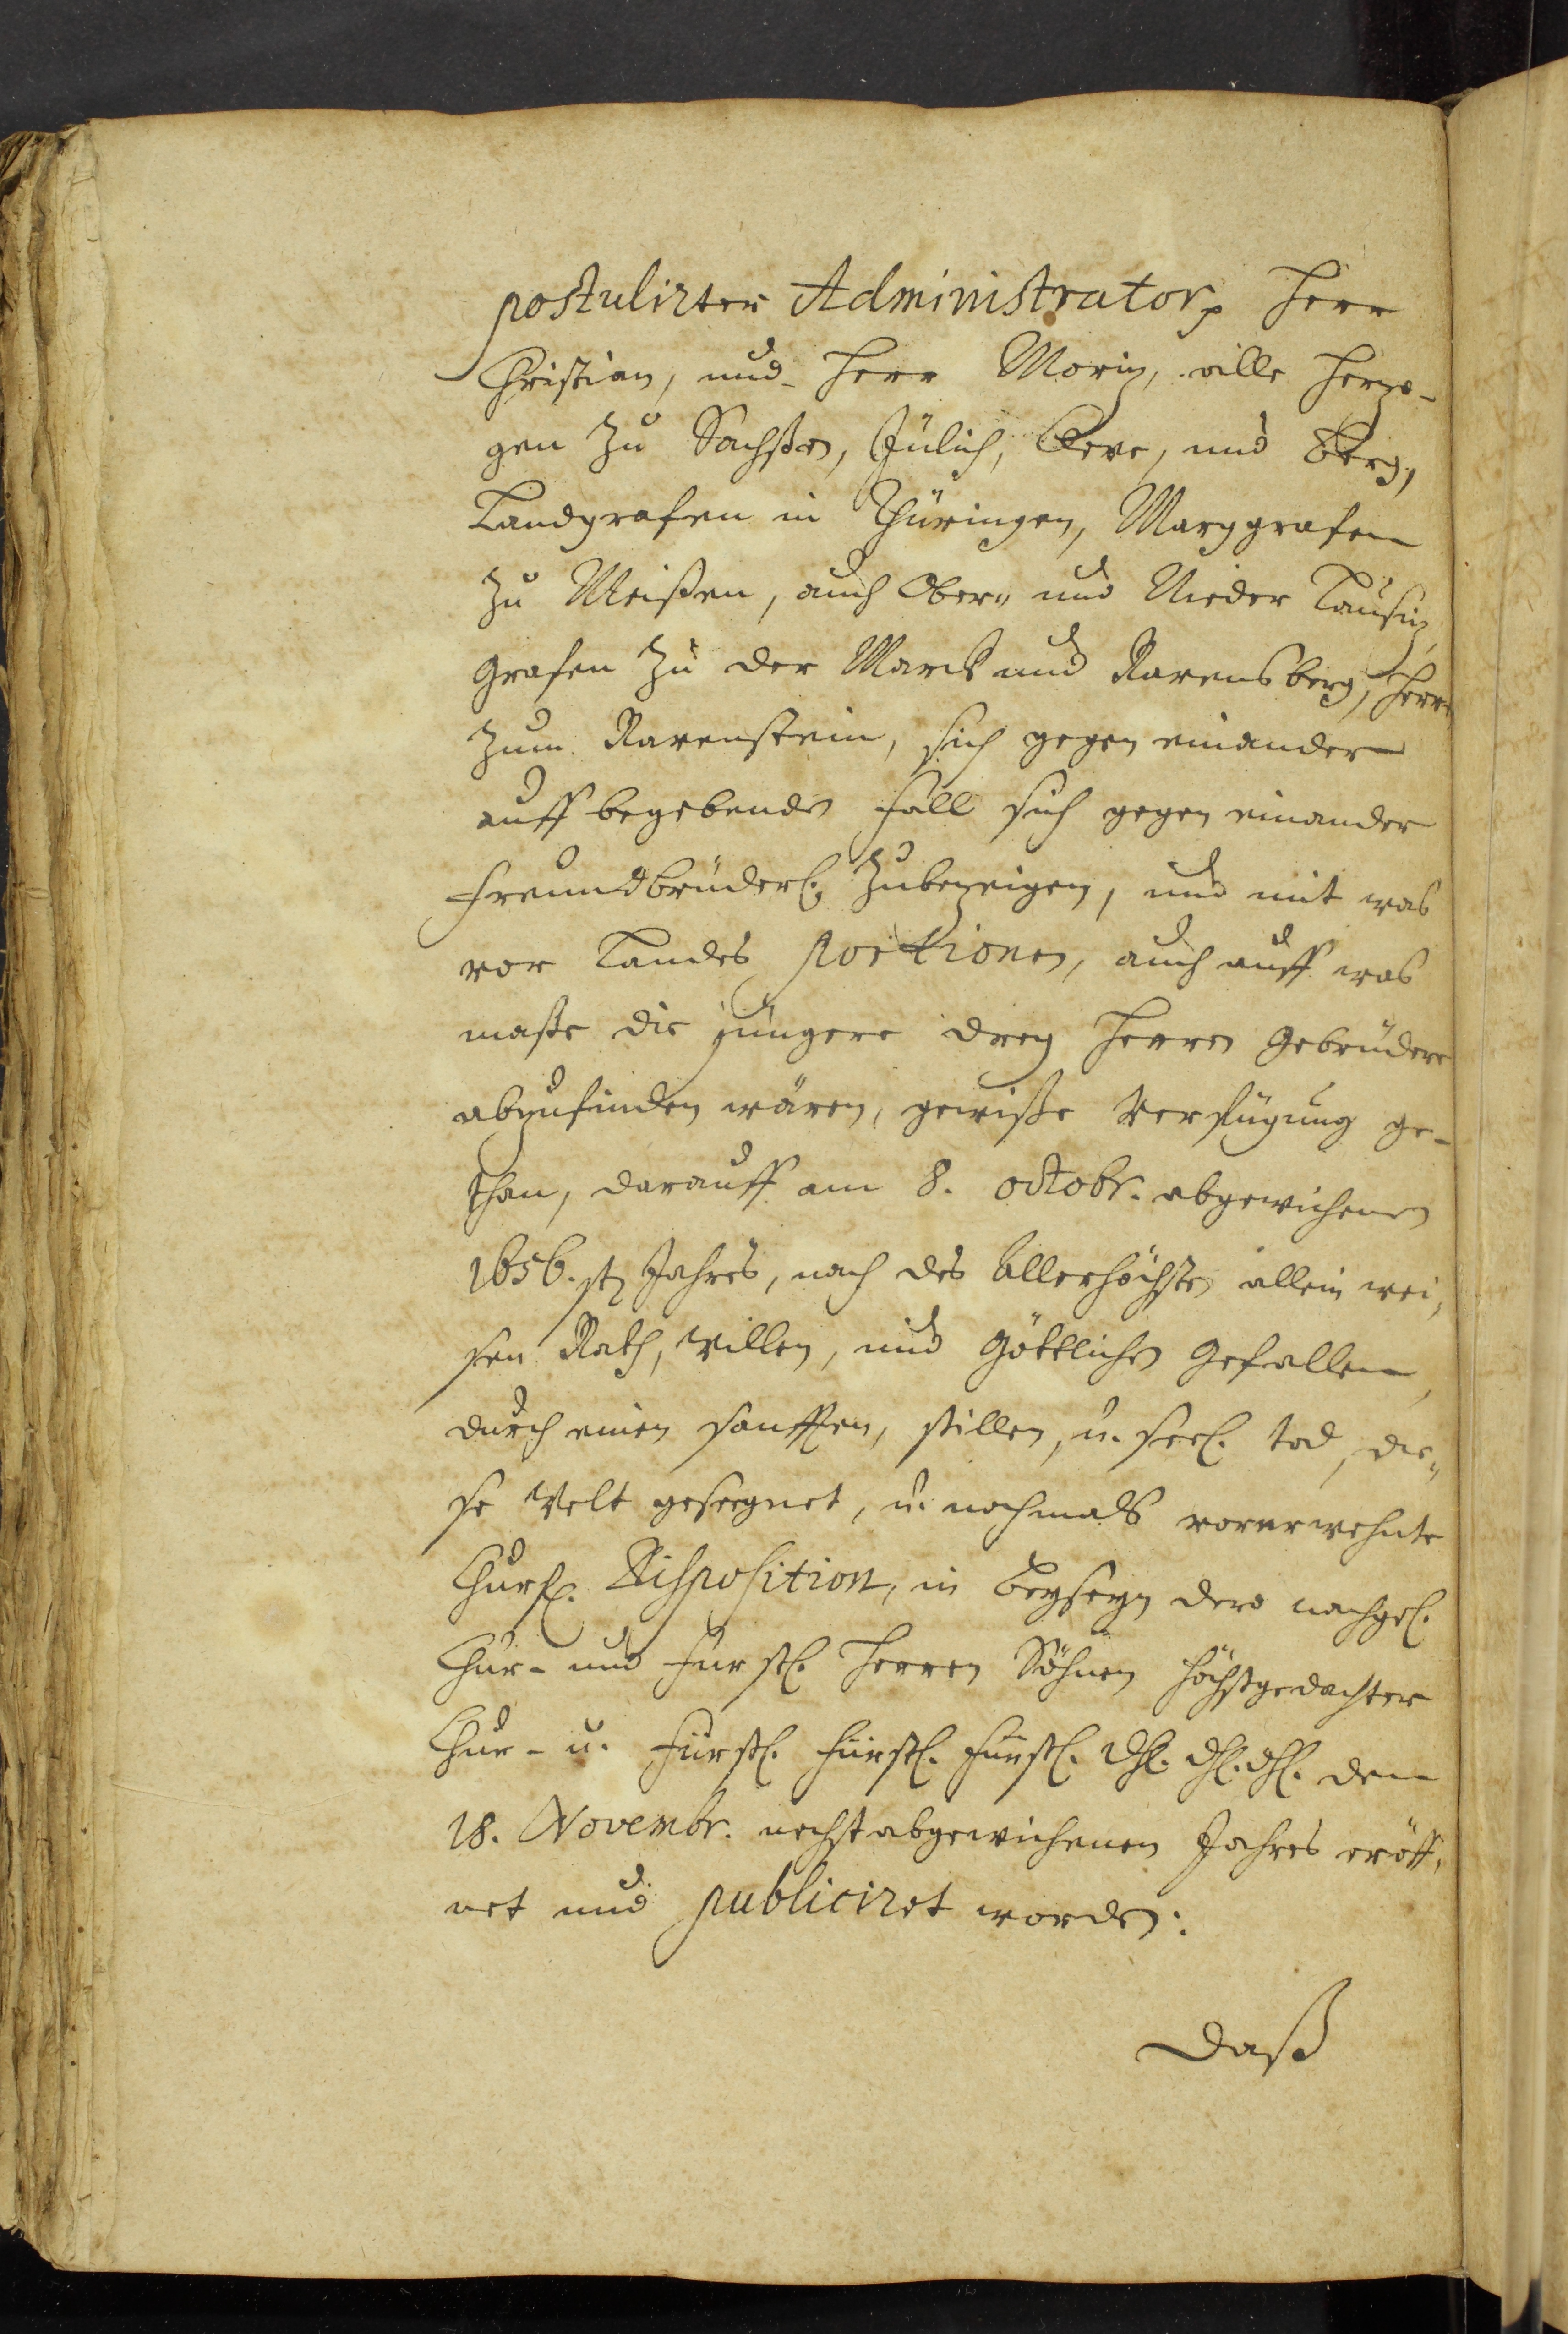 postulirter Administrator, Herr
Christian, und Herr Moriz, alle Herzo-
gen zu Sachßen, Jülich, Cleve, und Berg,
Landgrafen in Thüringen, Marggrafen
zu Meißen, auch Ober- und Nieder Laußiz,
Grafen zu der Marck und Ravensberg, Herrn
zum Ravenstein, sich gegen einander
auff begebenden Fall sich gegen einander
freundbrüderl. zubezeigen, und mit was
vor Landes portionen, auch auff was
maße die jüngere drey Herren Gebrüdere
abzufinden wären, gewiße Verfügung ge-
than, darauff am 8. octobr. abgewichenen
1656.sten Jahres, nach des Allerhöchsten allein wei-
sen Rath, Willen, und Göttlichen Gefallen,
durch einen sanfften, stillen, u. seel. tod, die-
se Welt gesegnet, u. nachmals vorerwehnte
Churfl. Disposition, in beyseyn dero nachgel.
Chur- und Fürstl. Herren Söhnen höchstgedachter
Chur- u. Fürstl. Fürstl. Fürstl. Dhl. Dhl. Dhl. den
18. Novembr. nechst abgewichenen Jahres eröff-
net und publiciret worden:
Daß